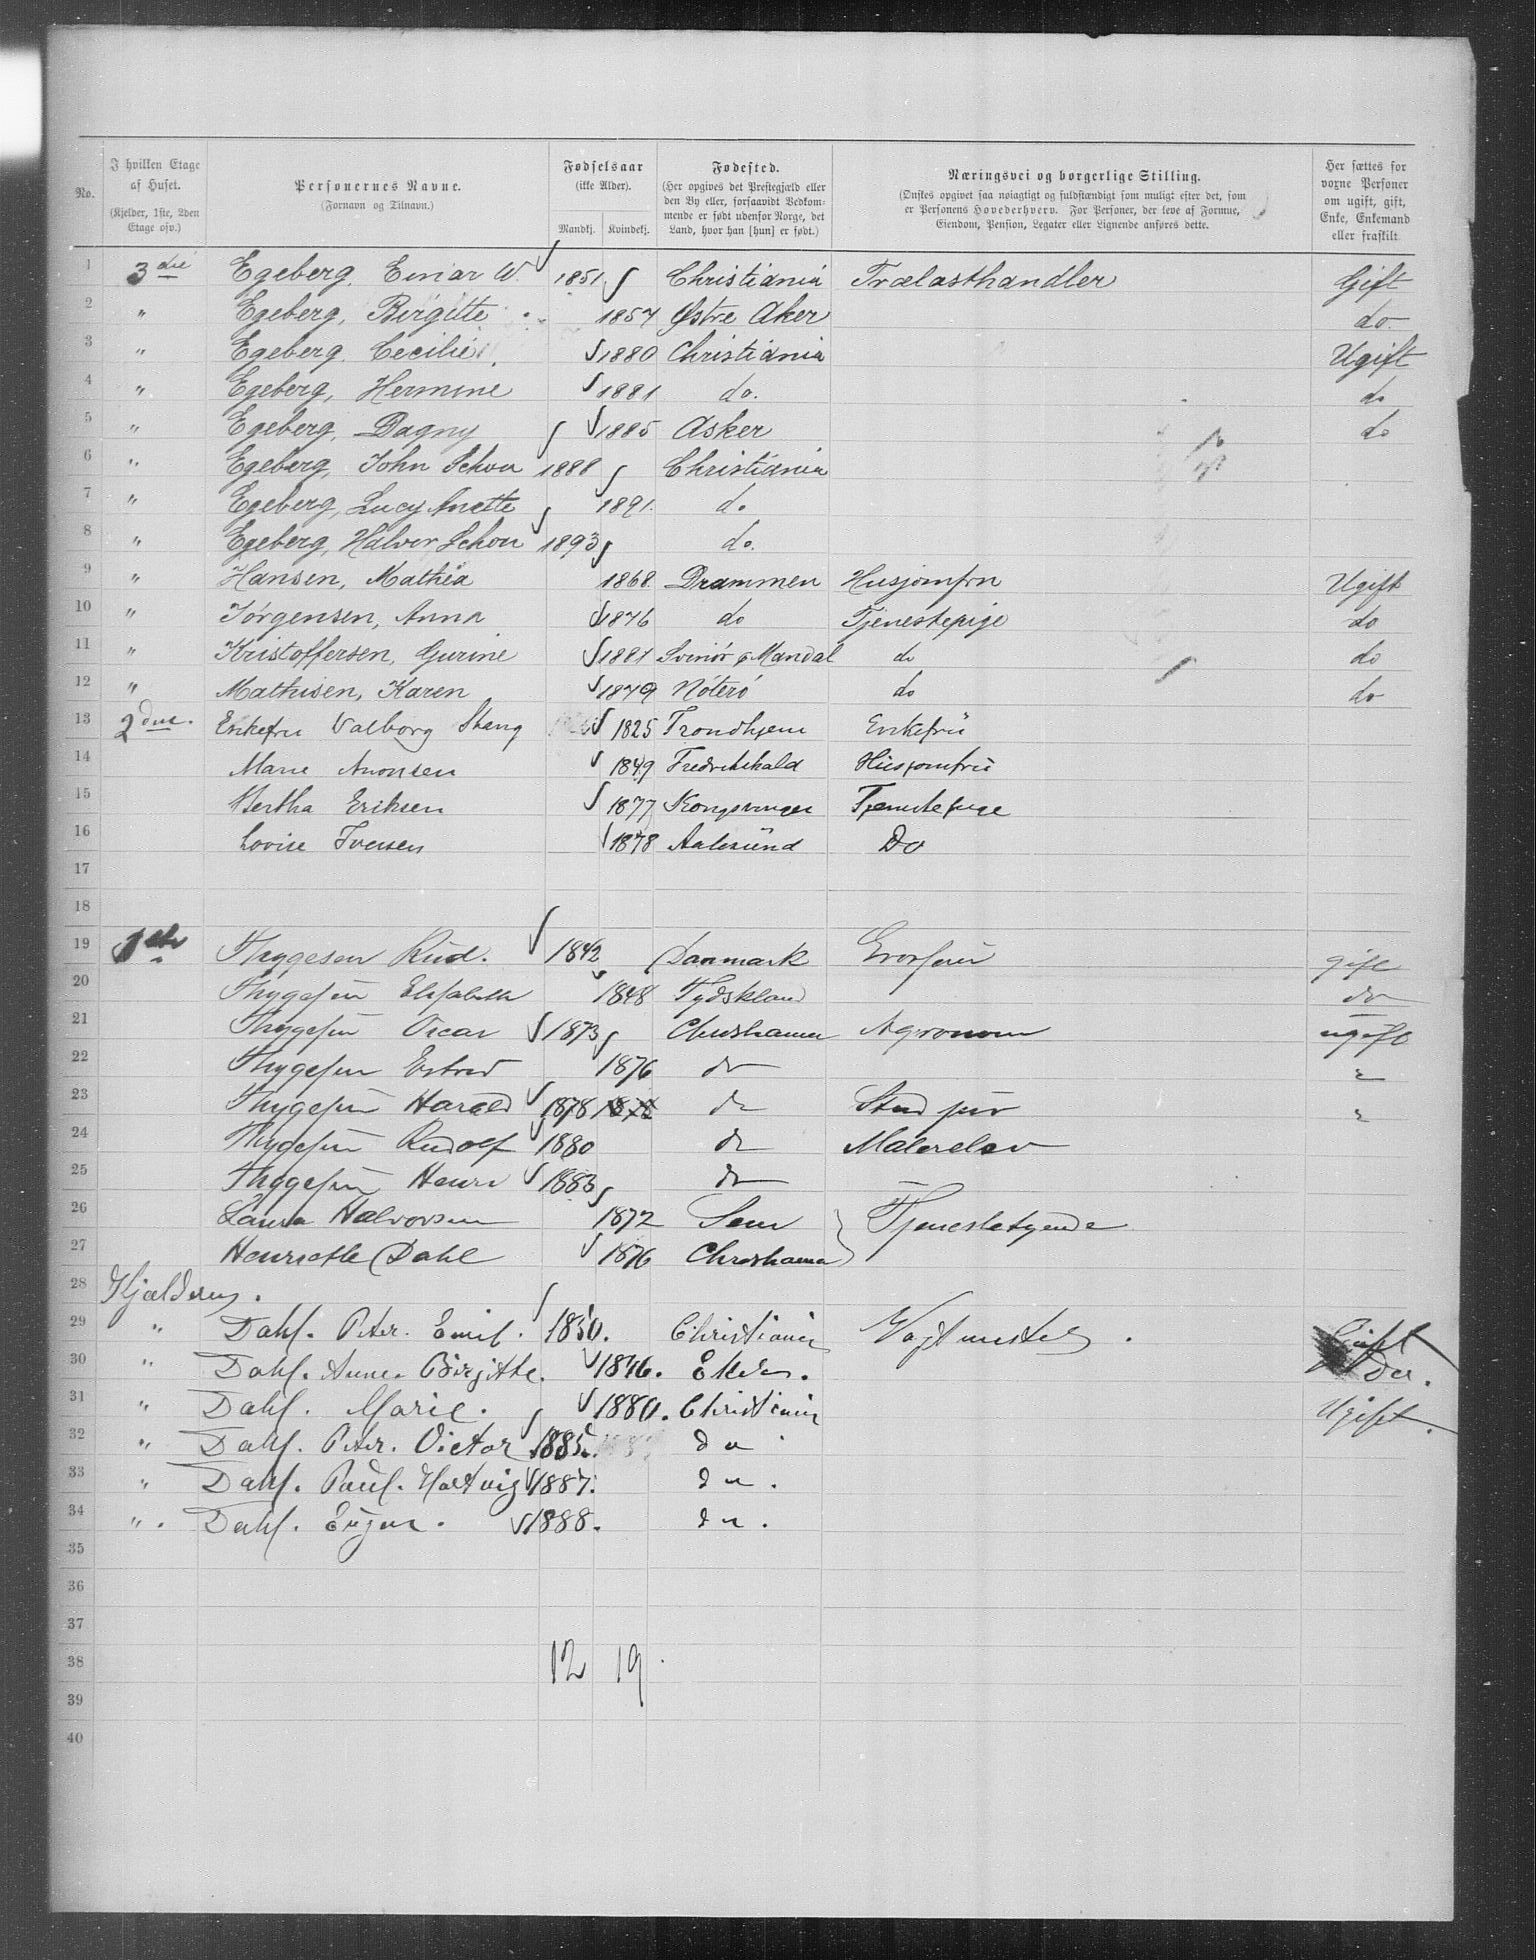 No. | I hvilken Etage af Huset. (Kjelder, 1ste, 2den Etage osv.) | Personernes Navne. (Fornavn og Tilnavn.) | Fødselsaar (ikke Alder). Mandkj. Kvindekj. | Fødested. (Her opgives det Prestegjæld eller den By eller, forsaavidt Vedkommende er født udenfor Norge, det Land, hvor han [hun] er født.) | Næringsvei og borgerlige Stilling. (Ønskes opgivet saa nøiagtigt og fuldstændigt som muligt efter det, som er Personens Hovederhverv. For Personer, der leve af Formue, Eiendom, Pension, Legater eller Lignende anføres dette. | Her sættes for voxne Personer om ugift, gift, Enke, Enkemand eller fraskilt.
1 3die Egeberg, Einar W. 1851 Christiania Trælasthandler Gift
2 " Egeberg, Birgitte 1857 Østre Aker do.
3 " Egeberg, Cecilie 1880 Christiania Ugift
4 " Egeberg, Hermine 1881 do. do
5 " Egeberg, Dagny 1885 Asker do
6 " Egeberg, John Schou 1888 Christiania
7 " Egeberg, Lucy Anette 1891. do
8 " Egeberg, Halvor Schou 1893 do.
9 " Hansen, Mathea 1868. Drammen Husjomfru Ugift
10 " Jørgensen, Anna 1876 do Tjenestepige do
11 " Kristoffersen, Gurine 1881 Svinör p Mandal do do
12 " Mathisen, Karen 1879 Nöterö do do
13 2den. Enkefru Valborg Stang 1825 Trondhjem Enkefrü
14 Marie Aronsen 1849 Fredrikshald Hüsjomfrü
15 Bertha Eriksen 1877 Kongsvinger Tjenestepige
16 Lovise Iversen 1878 Aalesünd Do
17
18
19 1ste Thygesen Rud. 1842 Danmark Grosserer gift
20 Thygesen Elisabeth 1848 Tydskland do
21 Thygesen Oscar 1873 Christiania Agronom ugift
22 Thygesen Estrid 1876 do "
23 Thygesen Harald 1878 1878 do Stud jur "
24 Thygesen Rudolf 1880 do Malerelev
25 Thygesen Henri 1883 do
26 Laura Halvorsen 1872 Sem } Tjenestetyende
27 Henriette Dahl 1876 Christiania
28 Kjælderen.
29 " Dahl. Peter. Emil. 1850. Christiania Vagtmester. Gift
30 " Dahl. Anne. Birgitte. 1846. Do.
31 " Dahl. Marie. 1880. Christiania Ugift.
32 " Dahl. Peter. Victor 1885. do
33 " Dahl. Paul. Hartvig 1887. do.
34 " . Dahl. Eugen. 1888. do.
35
36
37
38 12 19
39
40